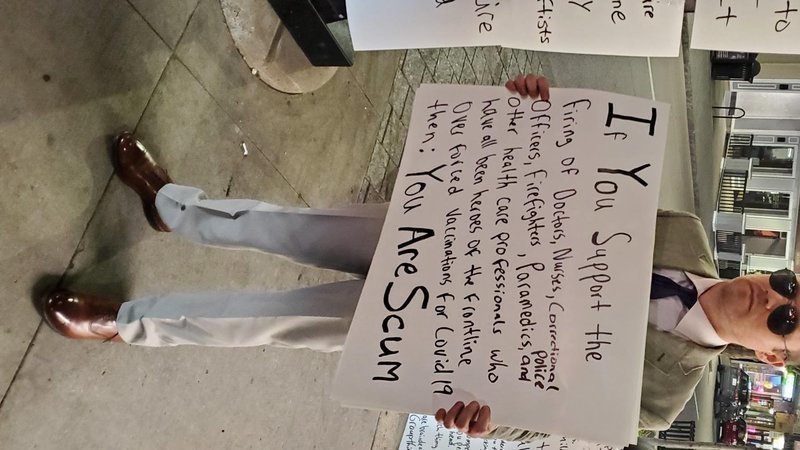 If You Support the
firing of Doctors, Nurses, Correctional
Police
Officers, Firefighters, Paramedics, and
Other health care professionals who
have all been heroes of the Frontline
Over forced Vaccinations for Covid 19
then: You Are Scum
to